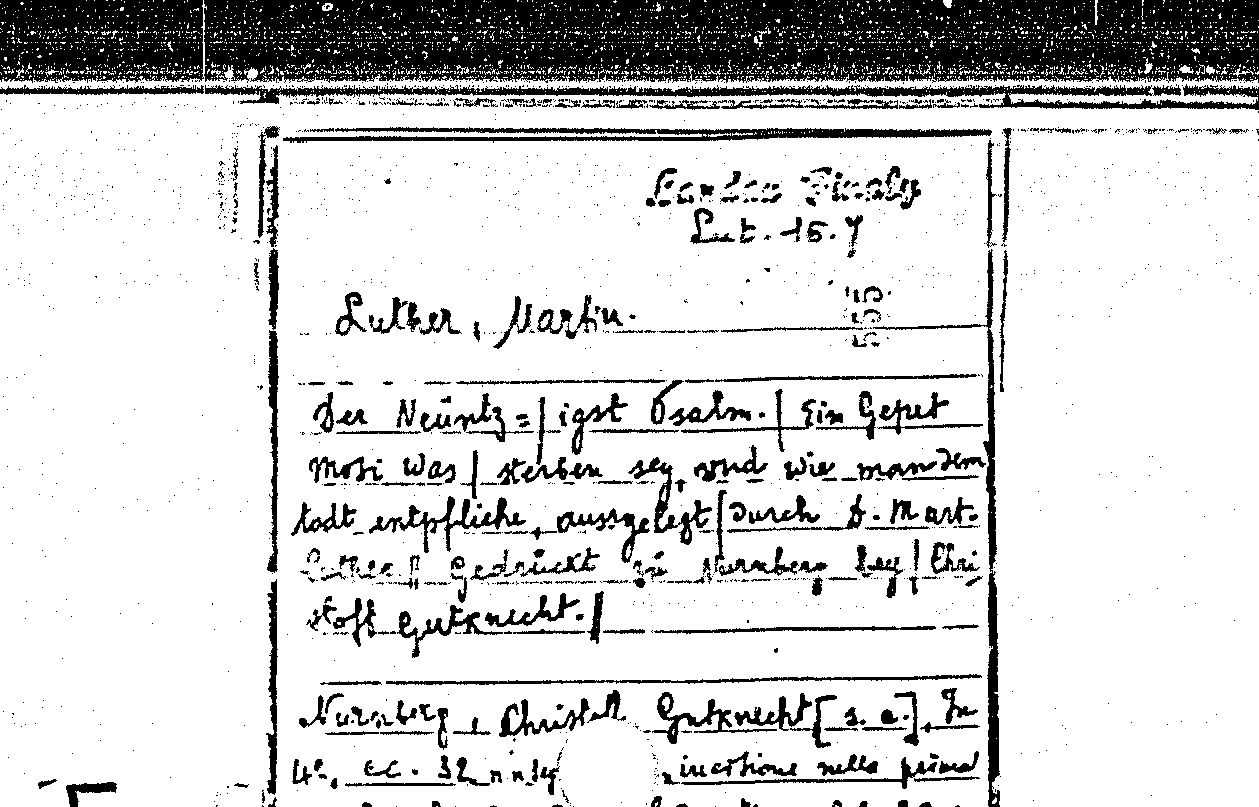 Landau Finaly
Lut. 15.7
555
Luther, Martin.
Der Neüntz=| igst Psalm. | Ein Gepet
Mosi was | sterben sey, vnd wie man dem
todt entpfliehe, aussgelegt | durch D. Mart.
Luther || Gedrückt zü Nurnberg bey | Chri
stoff Gutknecht. ||
Nurnberg, Gutknecht [s. a.], In
4º, cc. 32 incisione nella prima